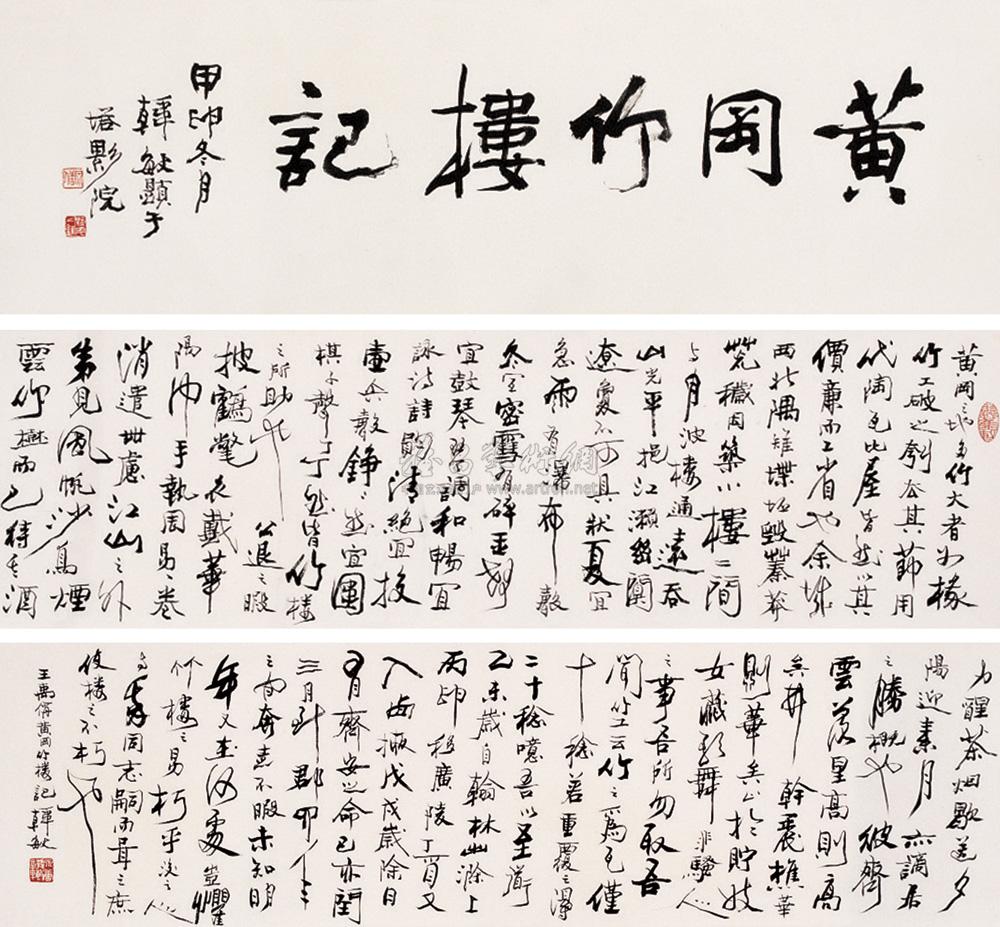 黄岡竹樓記
甲申冬月
韓敏顯于
塔影院
黄岡之地多竹大者如椽
竹工破之刳去其節用
代陶瓦比屋皆然以其
價廉而工省也余城
西北隅雉堞圮毁蓁莽
荒穢因築小樓二間
与月波樓通遠吞
山光平挹江瀨幽闃
遼夐不可具狀夏宜
急雨有瀑布聲
冬宜密雪有碎玉聲
宜鼓琴琴調和暢宜
詠詩詩韻清絶宜投
壺矢聲錚錚然宜圍
棋子聲丁丁然皆竹樓
之所助也公退之暇
披鶴氅衣戴華
陽巾手執周易一卷
消遣世慮江山之外
弟見風帆沙鳥煙
雲竹樹而已待其酒
力醒茶烟歇送夕
陽迎素月亦謫居
之勝概也彼齊
雲落星高則高
矣井幹麗樵華
則華矣止於貯妓
女藏歌舞非騷人
之事吾所勿取吾
聞竹工云竹之爲瓦僅
十稔若重覆之得
二十稔噫吾以至道
乙未歲自翰林出滁上
丙申移廣陵丁酉又
入西掖戊戌歲除日
有齊安之命己亥閏
三月到郡四年之
間奔走不暇未知明
年又在何處豈懼
竹樓之易朽乎後之人
與我同志嗣而葺之庶
使樓之不朽也
王禹偁黄岡竹樓記韓敏